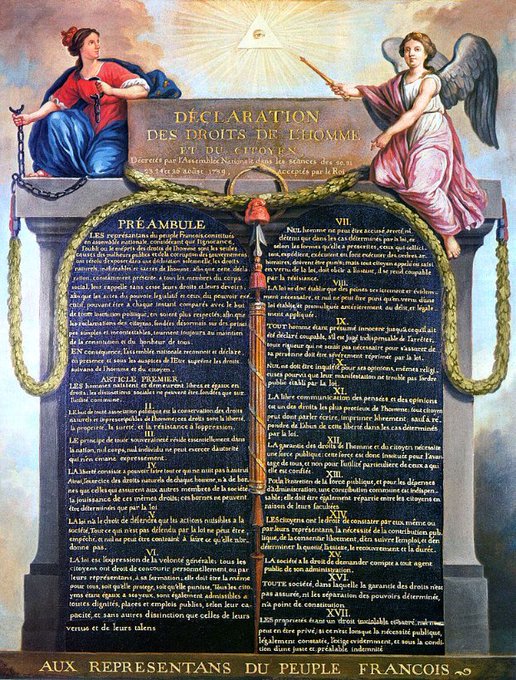 DÉCLARATION
DES DROITS DE L'HOMME
ET DU CITOYEN
Décrétés par l'Assemblée Nationale dans les séances des 20. 21
23. 24 et 26 aoust 1789, acceptés par le Roi
PRÉAMBULE
LES représentans du peuple François, constitués
en assemblée nationale, considérant que l'ignorance,
l'oubli ou le mépris des droits de l'homme sont les seules
causes des malheurs publics et de la corruption des gouvernemens
ont résolu d'exposer dans une déclaration solemnelle, les droits
naturels, inaliénables et sacrés de l'homme; afin que cette décla-
ration, constamment présente a tous les membres du corps
social, leur rappelle sans cesse leurs droits et leurs devoirs;
afin que les actes du pouvoir législatif et ceux du pouvoir exé-
cutif, pouvant être a chaque instant comparés avec le but
de toute institution politique, en soient plus respectés; afin que
les réclamations des citoyens, fondées désormais sur des princi-
pes simples et incontestables, tournent toujours au maintien
de la constitution et du bonheur de tous.
EN conséquence, l'assemblée nationale reconnoit et déclare
en présence et sous les auspices de l'Etre suprême les droits
suivans de l'homme et du citoyen.
ARTICLE PREMIER.
LES hommes naissent et demeurent libres et égaux en
droits; les distinctions sociales ne peuvent être fondées que sur
l'utilité commune.
II.
LE but de toute association politique est la conservation des droits
naturels et imprescriptibles de l'homme; ces droits sont la liberté,
la propriété, la sureté, et la résistance à l'oppression.
III.
LE principe de toute souveraineté réside essentiellement dans
la nation, nul corps, nul individu ne peut exercer d'autorité
qui n'en émane expressément.
IV.
LA liberté consiste à pouvoir faire tout ce qui ne nuit pas à autrui
Ainsi, l'exercice des droits naturels de chaque homme, n'a de bor-
nes que celles qui assurent aux autres membres de la société
la jouissance de ces mêmes droits; ces bornes ne peuvent
être déterminées que par la loi
V.
LA loi n'a le droit de défendre que les actions nuisibles à la
société. Tout ce qui n'est pas défendu par la loi ne peut être
empêché, et nul ne peut être contraint à faire ce qu'elle n'or-
donne pas.
VI.
LA loi est l'expression de la volonté générale; tous les
citoyens ont droit de concourir personnellement, ou par
leurs représentans, à sa formation; elle doit être la même
pour tous, soit qu'elle protege, soit qu'elle punisse. Tous les citoy-
ens étant égaux à ses yeux, sont également admissibles à
toutes dignités, places et emplois publics, selon leur capa-
cité, et sans autres distinction que celles de leurs
vertus et de leurs talens
VII.
NUL homme ne peut être accusé, arreté, ni
détenu que dans les cas déterminés par la loi, et
selon les formes qu'elle a prescrites, ceux qui sollici-
tent, expédient, exécutent ou font exécuter des ordres ar-
bitraires, doivent être punis; mais tout citoyen appelé ou saisi
en vertu de la loi, doit obéir a l'instant, il se rend coupable
par la résistance.
VIII.
LA loi ne doit établir que des peines strictement et évidem-
ment nécessaires, et nul ne peut être puni qu'en vertu d'une
loi établie et promulguée antérieurement au délit, et légale-
ment appliquée.
IX.
TOUT homme étant présumé innocent jusqu'à ce qu'il ait
été déclaré coupable, s'il est jugé indispensable de l'arrêter,
toute rigueur qui ne seroit pas nécessaire pour s'assurer de
sa personne doit être sévèrement réprimée par la loi.
X.
NUL ne doit être inquiété pour ses opinions, mêmes religi-
euses pourvu que leur manifestation ne trouble pas l'ordre
public établi par la loi.
XI.
LA libre communication des pensées et des opinions
est un des droits les plus précieux de l'homme; tout citoyen
peut donc parler, écrire, imprimer librement, sauf à ré-
pondre de l'abus de cette liberté dans les cas déterminés
par la loi.
XII.
LA garantie des droits de l'homme et du citoyen nécessite
une force publique; cette force est donc instituée pour l'avan-
tage de tous, et non pour l'utilité particulière de ceux a qui
elle est confiée.
XIII.
Pour l'entretien de la force publique, et pour les dépenses
d'administration, une contribution commune est indispen-
sable; elle doit être également répartie entre les citoyens en
raison de leurs facultés
XIV.
LES citoyens ont le droit de constater par eux même ou
par leurs représentans, la nécessité de la contribution pub-
lique, de la consentir librement, d'en suivre l'emploi, et d'en
déterminer la quotité, l'assiette, le recouvrement et la durée.
XV.
LA société a le droit de demander compte a tout agent
public de son administration.
XVI.
TOUTE société, dans laquelle la garantie des droits n'est
pas assurée, ni les séparation des pouvoirs déterminée,
n'a point de constitution
XVII.
LES propriétés étant un droit inviolable et sacré, nul ne
peut en être privé, si ce n'est lorsque la nécessité publique,
légalement constatée, l'exige evidemment, et sous la condi-
tion d'une juste et préalable indemnité
AUX REPRESENTANS DU PEUPLE FRANCOIS